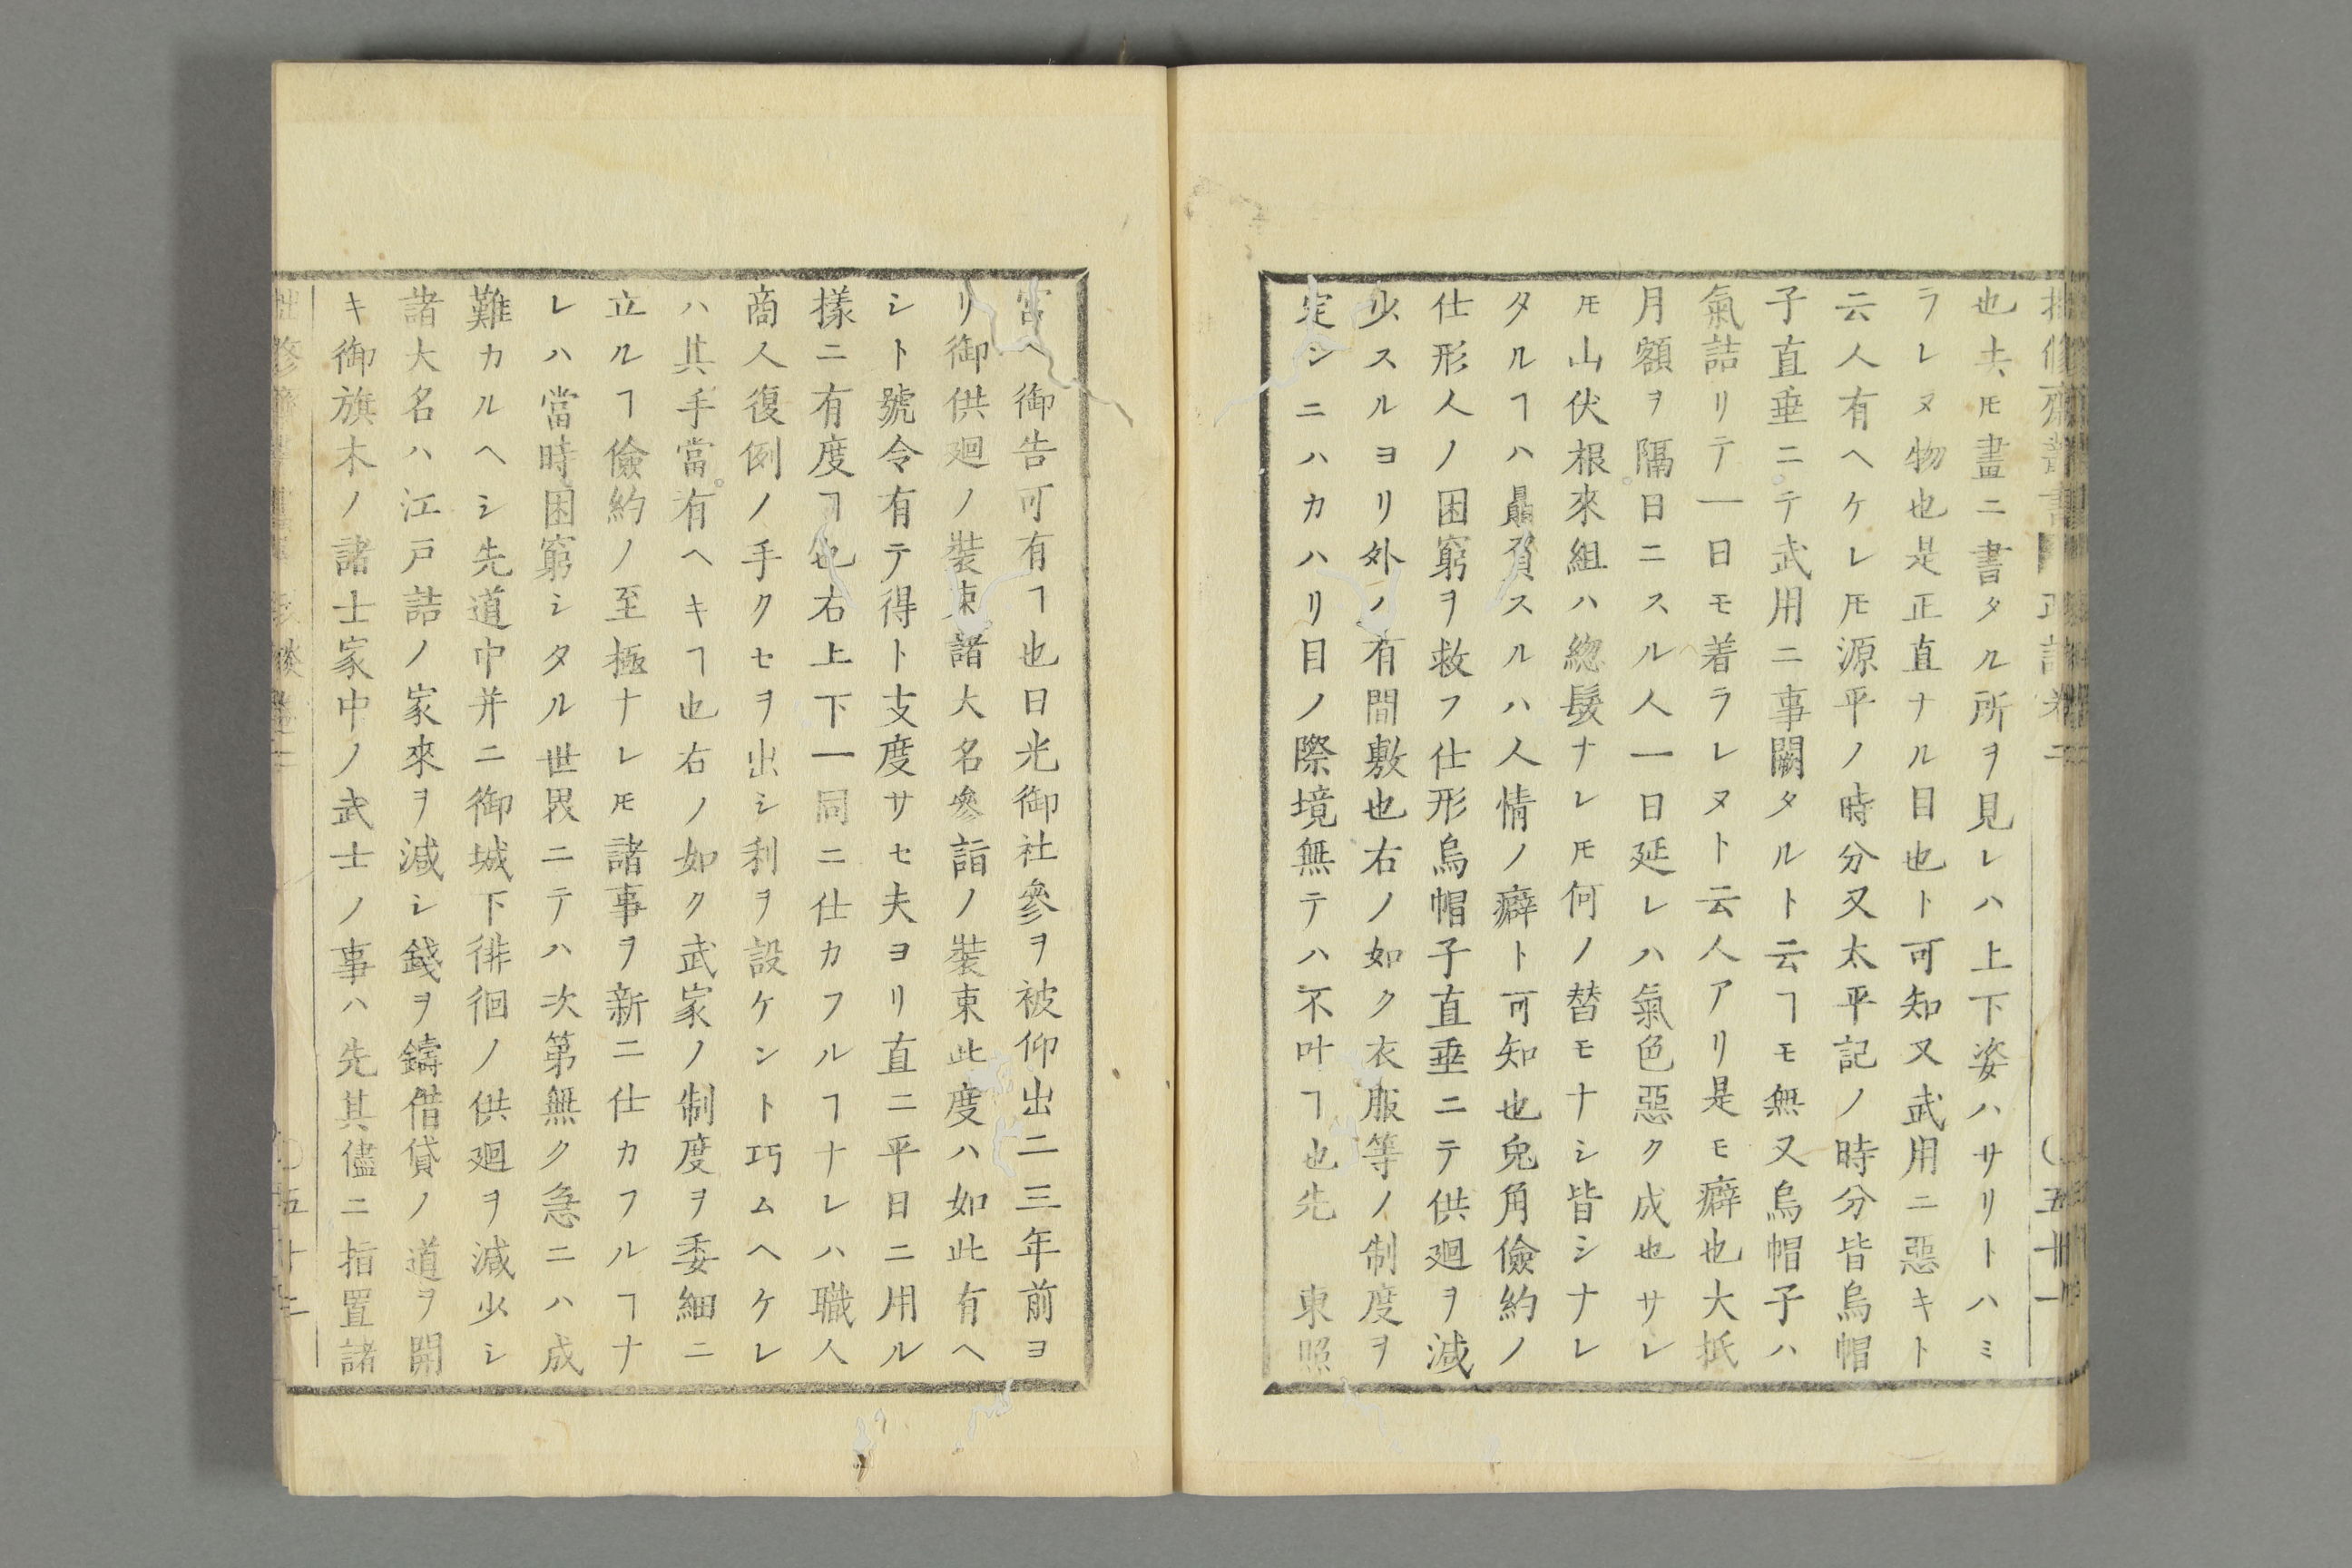 也夫𪜈畫ニ書タル所ヲ見レハ上下姿ハサリトハミ
ラレヌ物也是正直ナル目也ト可知又武用ニ惡キト
云人有ヘケレ𪜈源平ノ時分又太平記ノ時分皆烏帽
子直垂ニテ武用ニ事闕タルト云ヿモ無又烏帽子ハ
氣詰リテ一日モ着ラレヌト云人アリ是モ癖也大抵
月額ヲ隔日ニスル人一日延レハ氣色惡ク成也サレ
𪜈山伏根來組ハ總髮ナレ𪜈何ノ替モナシ皆シナレ
タルヿハ贔負スルハ人情ノ癖ト可知也兔角儉約ノ
仕形人ノ困窮ヲ救フ仕形烏帽子直垂ニテ供廻ヲ減
少スルヨリ外ノ有間敷也右ノ如ク衣服等ノ制度ヲ
定ンニハカハリ目ノ際境無テハ不叶ヿ也先 東照
宮ヘ御告可有ヿ也日光御社參ヲ被仰出二三年前ヨ
リ御供廻ノ裝束諸大名參詣ノ裝束此度ハ如此有ヘ
シト號令有テ得ト支度サセ夫ヨリ直ニ平日ニ用ル
樣ニ有度ヿ也右上下一同ニ仕カフルヿナレハ職人
商人復例ノ手クセヲ出シ利ヲ設ケント巧ムヘケレ
ハ其手當有ヘキヿ也右ノ如ク武家ノ制度ヲ委細ニ
立ルヿ儉約ノ至極ナレ𪜈諸事ヲ新ニ仕カフルヿナ
レハ當時困窮シタル世界ニテハ次第無ク急ニハ成
難カルヘシ先道中并ニ御城下徘徊ノ供廻ヲ減少シ
諸大名ハ江戸詰ノ家來ヲ減シ錢ヲ鑄借貸ノ道ヲ開
キ御旗本ノ諸士家中ノ武士ノ事ハ先其儘ニ指置諸